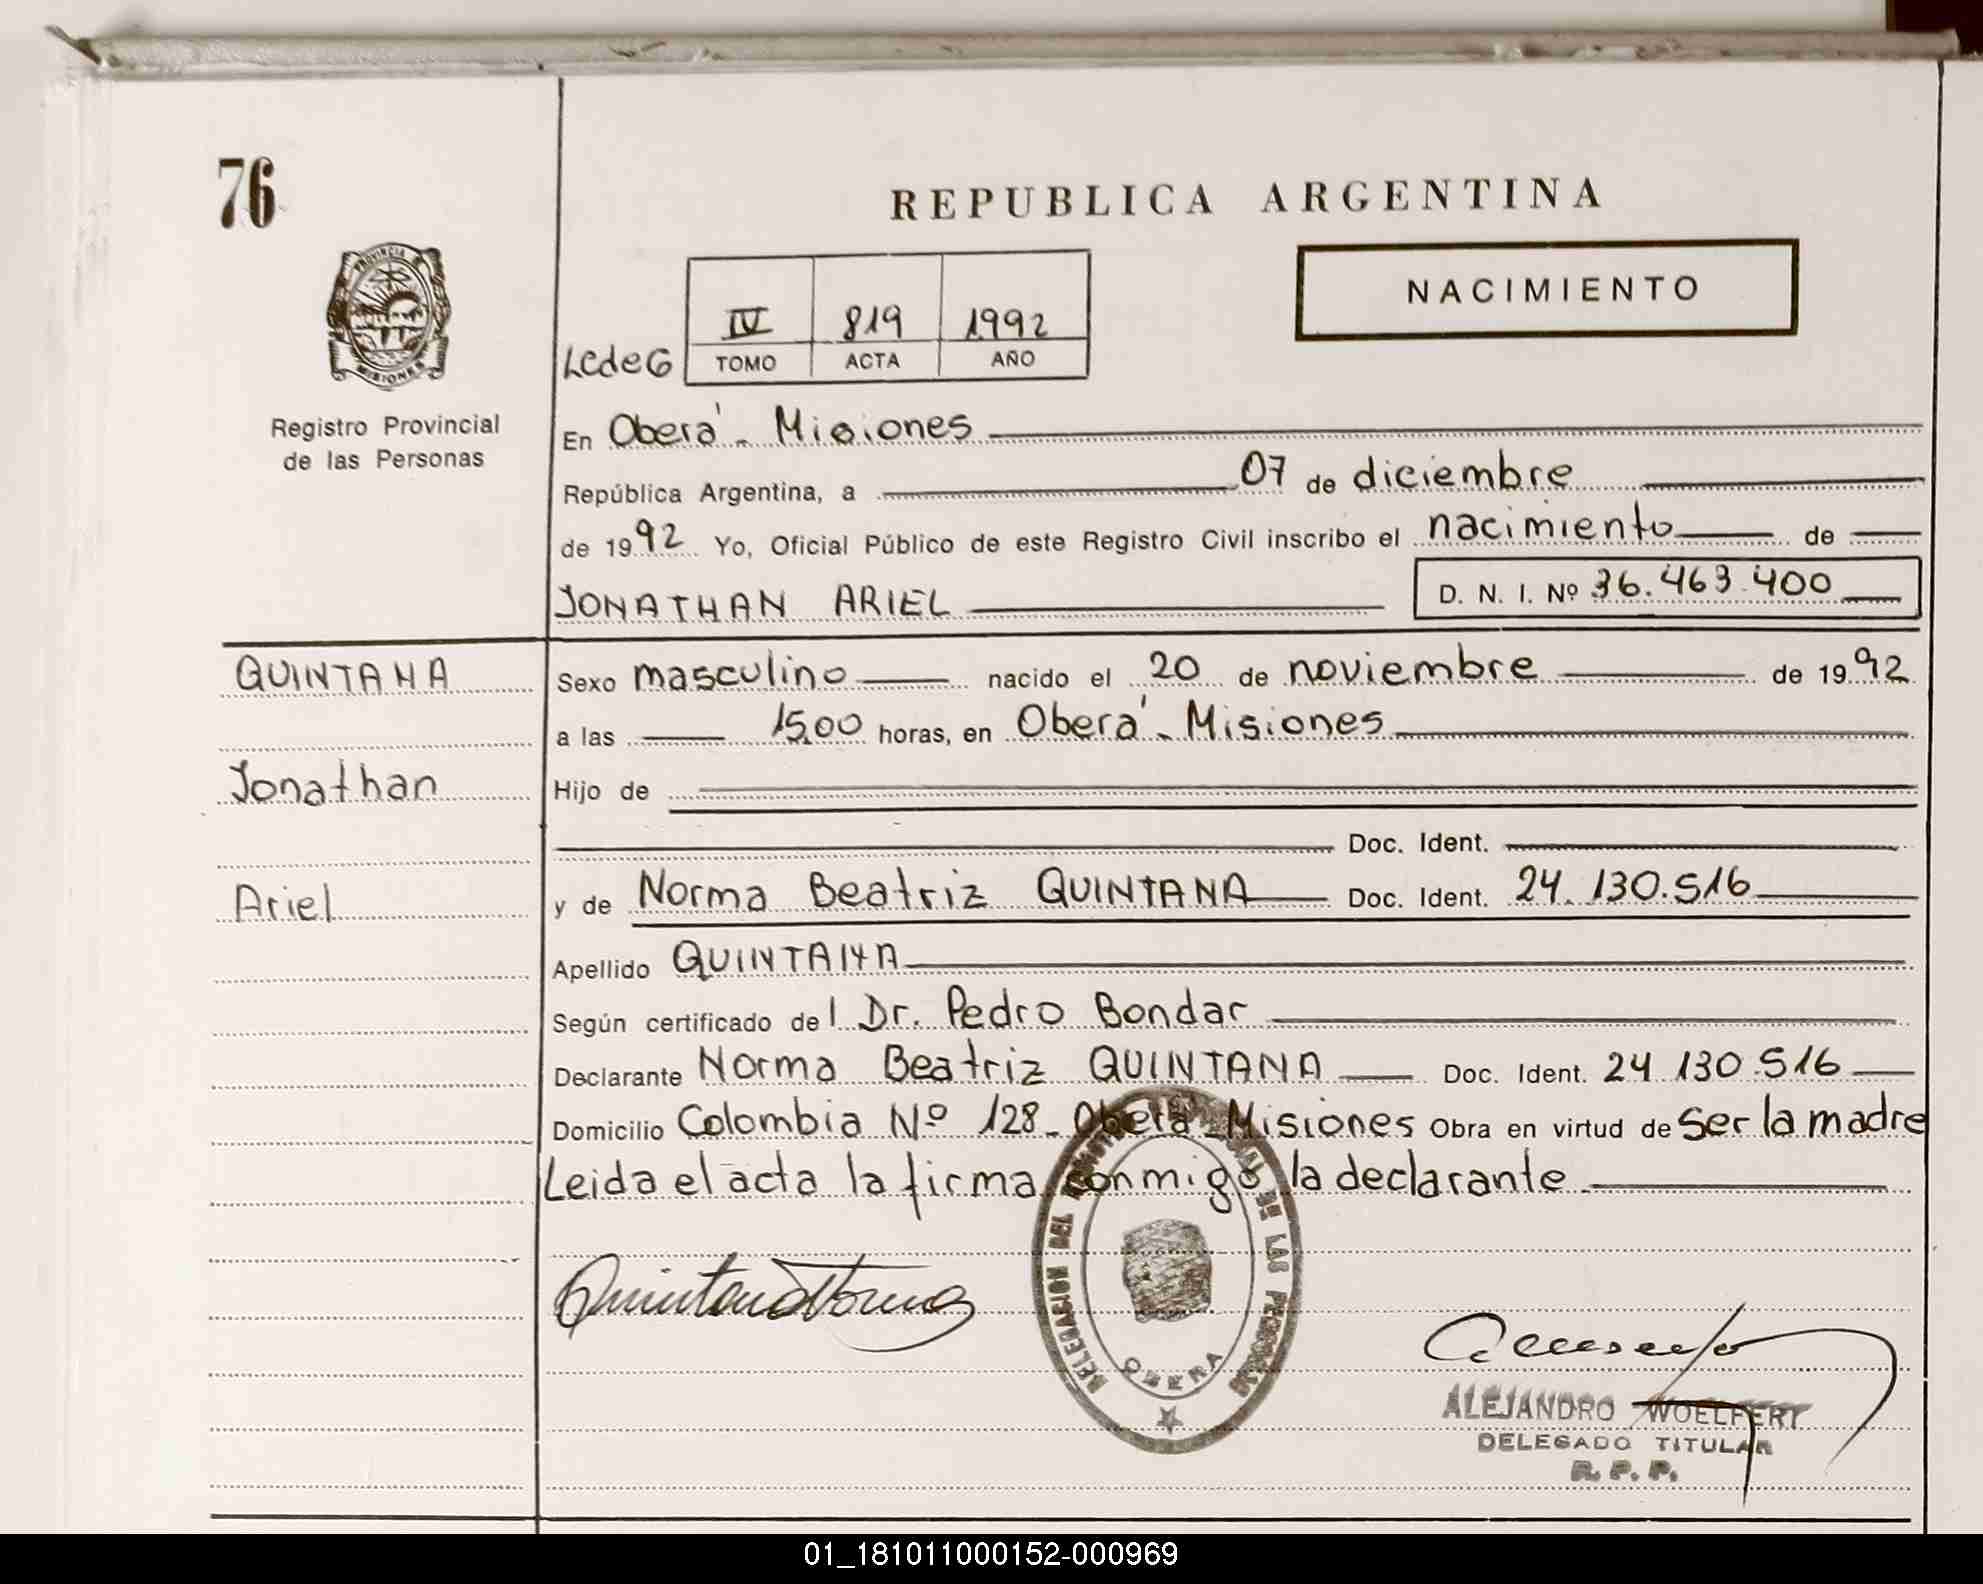 76
REPUBLICA ARGENTINA
NACIMIENTO
IV 819 1992
LcdeG TOMO ACTA AÑO
PROVINCIA DE MISIONES
Registro Provincial
de las Personas
En Oberá - Misiones
República Argentina, a 07 de diciembre
de 1992 Yo, Oficial Público de este Registro Civil inscribo el nacimiento de
JONATHAN ARIEL D. N. I. Nº 36.463.400
QUINTANA
Sexo masculino nacido el 20 de noviembre de 1992
a las 15,00 horas, en Oberá - Misiones
Jonathan
Hijo de
Doc. Ident.
Ariel
y de Norma Beatriz QUINTANA Doc. Ident. 24.130.516
Apellido QUINTANA
Según certificado del Dr. Pedro Bondar
Declarante Norma Beatriz QUINTANA Doc. Ident. 24.130.516
Domicilio Colombia Nº 128 - Oberá - Misiones Obra en virtud de ser la madre
Leida el acta la firma conmigo la declarante
Quintana Norma
DELEGACION DEL DE LAS PERSONAS
OBERA
ALEJANDRO WOELFERT
DELEGADO TITULAR
R. P. P.
01_181011000152-000969